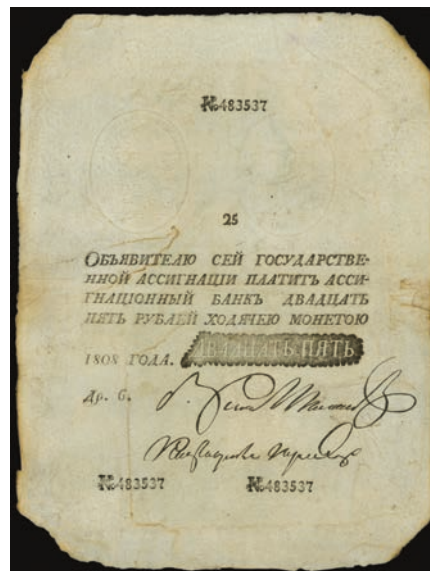 №483537
25
ОБЪЯВИТЕЛЮ СЕЙ ГОСУДАРСТВЕ-
ННОЙ АССИГНАЦІИ ПЛАТИТЪ АССИ-
ГНАЦІОННЫЙ БАНКЪ ДВАДЦАТЬ
ПЯТЬ РУБЛЕЙ ХОДЯЧЕЮ МОНЕТОЮ
1808 ГОДА. ДВАДЦАТЬ ПЯТЬ
Др. б.
№483537 №483537